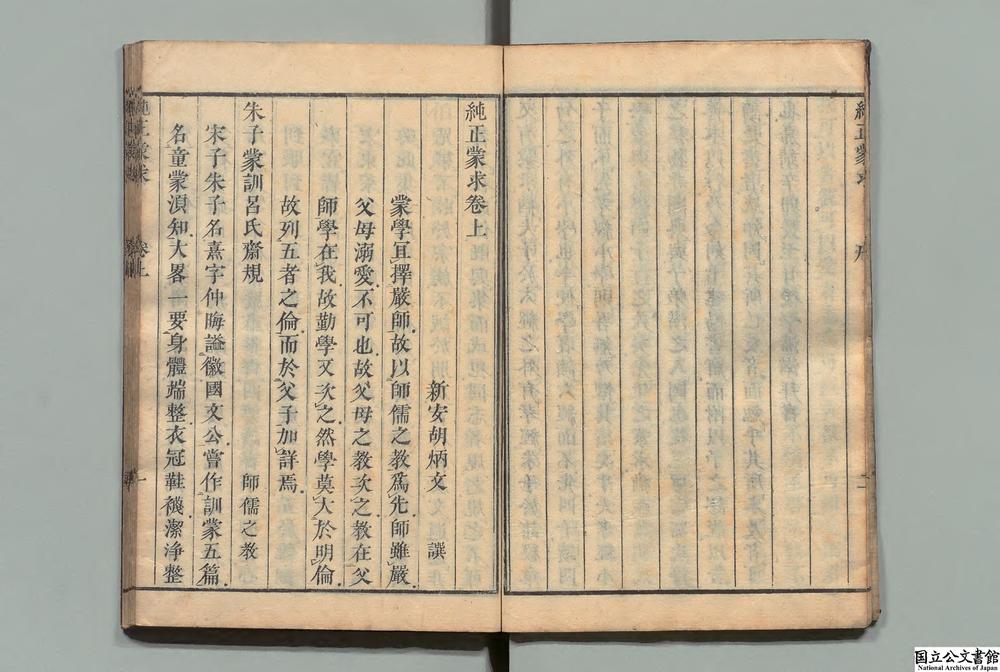 純正蒙求
序
二
純正蒙求卷上
新安胡炳文 譔
蒙學且擇嚴師故以師儒之教爲先師雖嚴
父母溺愛不可也故父母之教次之教在父
師學在我故勤學又次之然學莫大於明倫
故列五者之倫而於父子加詳焉
朱子蒙訓呂氏齋規 師儒之教
宋子朱子名熹字仲晦謚徽國文公嘗作訓蒙五篇
名童蒙湏知大畧一要身體端整衣冠鞋襪潔淨整
純正蒙求 卷上 一
国立公文書館
National Archives of Japan